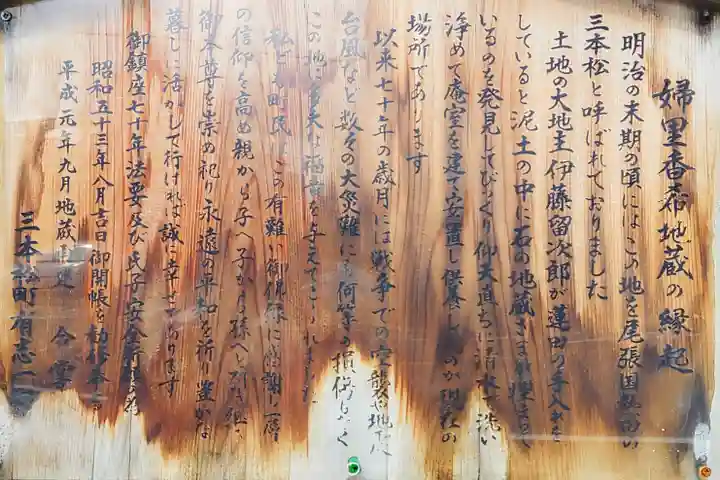 婦里香希地蔵の縁起
明治の末期の頃にはこの地を尾張国熱田の
三本松と呼ばれておりました
土地の大地主伊藤留次郎が蓮田の手入れを
していると泥土の中に石の地蔵さまが埋まって
いるのを発見してびっくり仰天直ちに清水で洗い
浄めて庵室を建て安置し供養したのが現在の
場所であります
以来七十年の歳月には戦争での空襲に地震
台風など数々の大災難にも何等の損傷もなく
この地に多大な福音を与えてこられました
私ども町民はこの有難い御佛縁に感謝し一層
の信仰を高め親から子へ子から孫へと引き継ぎ
御本尊を崇め祀り永遠の平和を祈り豊かな
暮しに活かして行ければ誠に幸であります
御鎮座七十年法要及び氏子安全
昭和五十三年八月吉日御開帳を
平成元年九月地蔵
三本松町有志一同